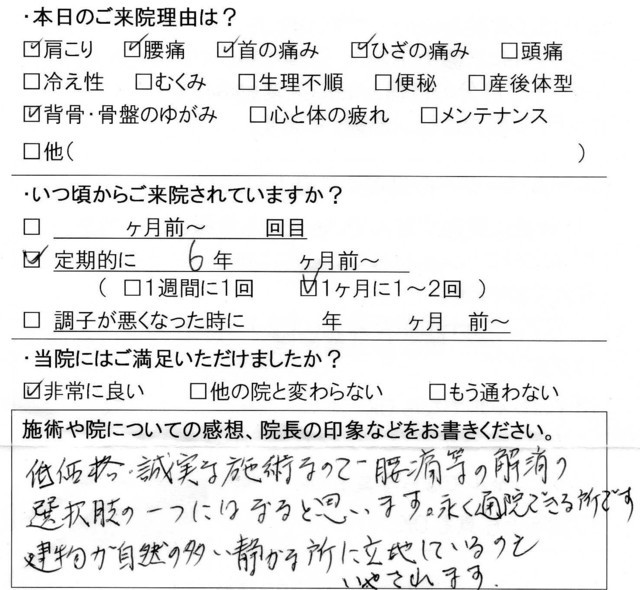 ・本日のご来院理由は？
☑肩こり ☑腰痛 ☑首の痛み ☑ひざの痛み □頭痛
□冷え性 □むくみ □生理不順 □便秘 □産後体型
☑背骨・骨盤のゆがみ □心と体の疲れ □メンテナンス
□他( )
・いつ頃からご来院されていますか？
□ ヶ月前～ 回目
☑ 定期的に 6年 ヶ月前～
( □1週間に1回 ☑1ヶ月に1～2回 )
□ 調子が悪くなった時に 年 ヶ月 前～
・当院にはご満足いただけましたか？
☑非常に良い □他の院と変わらない □もう通わない
施術や院についての感想、院長の印象などをお書きください。
低価格・誠実な施術なので腰痛等の解消の
選択肢の一つにはなると思います。永く通院できる所です
建物が自然の多い静かな所に立地しているのも
いやされます.